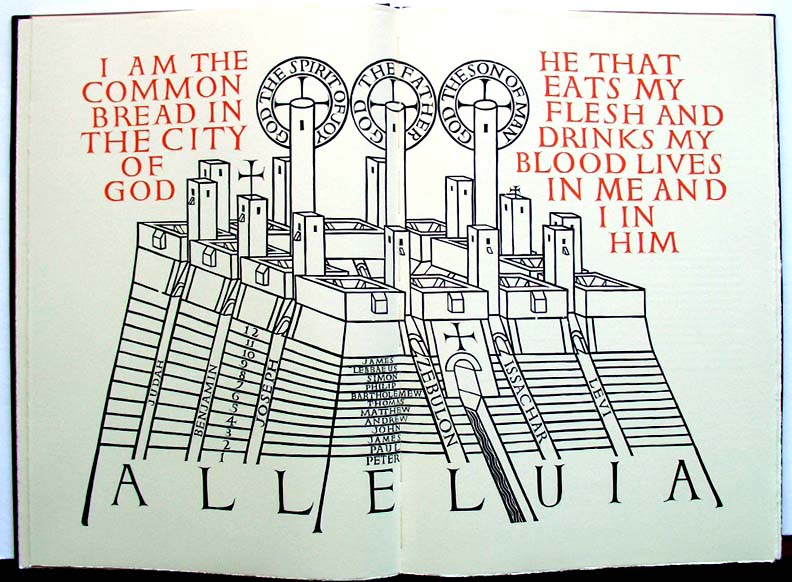 I AM THE
COMMON
BREAD IN
THE CITY
OF
GOD
GOD THE SPIRIT OF JOY
GOD THE FATHER
GOD THE SON OF MAN
HE THAT
EATS MY
FLESH AND
DRINKS MY
BLOOD LIVES
IN ME AND
I IN
HIM
JUDAH
BENJAMIN
12
11
10
9
8
7
6
5
4
3
2
1
JOSEPH
JAMES
LEBBAEUS
SIMON
PHILIP
BARTHOLEMEW
THOMAS
MATTHEW
ANDREW
JOHN
JAMES
PAUL
PETER
ZEBULON
ISSACHAR
LEVI
ALLELUIA